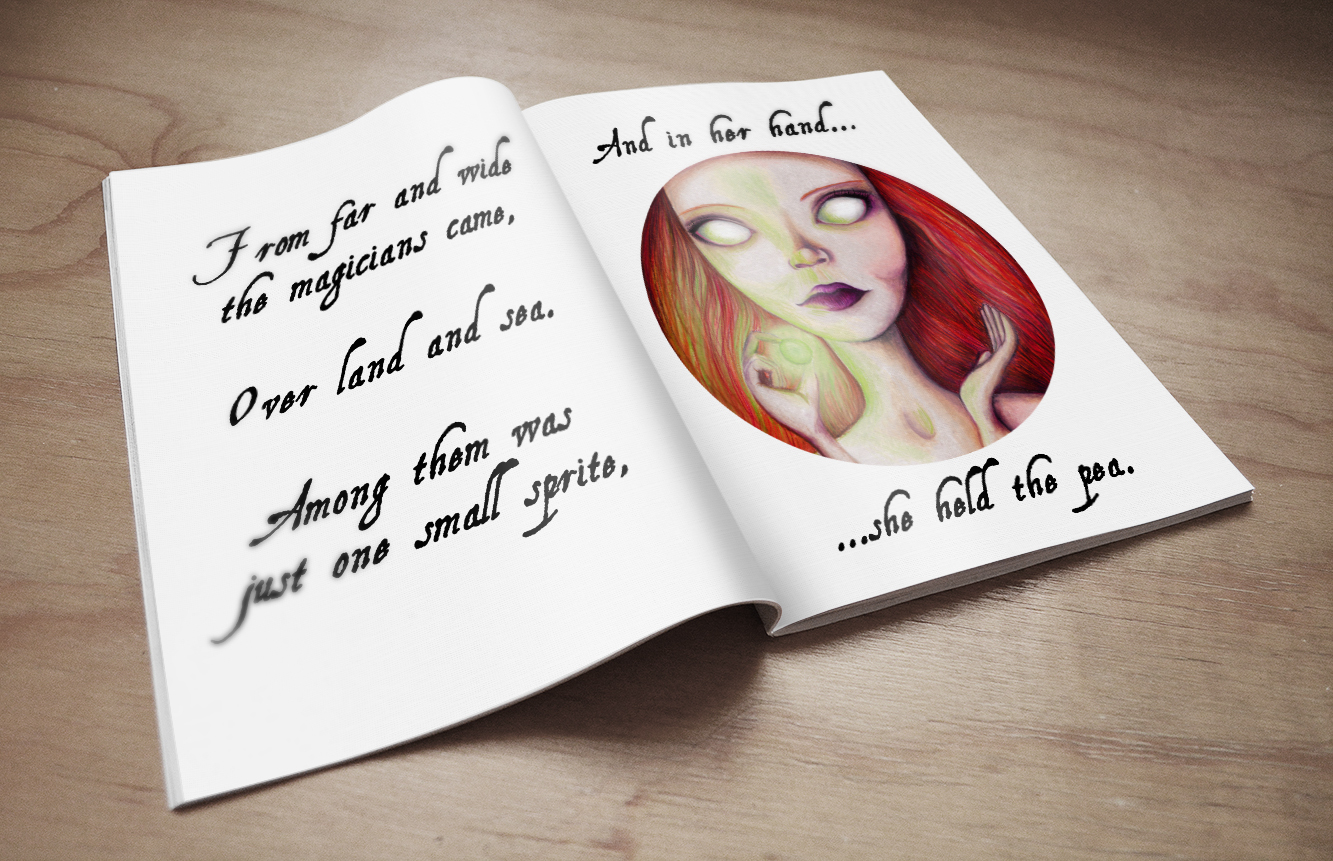 From far and wide
the magicians came,
Over land and sea.
Among them was
just one small sprite,
And in her hand...
...she held the pea.